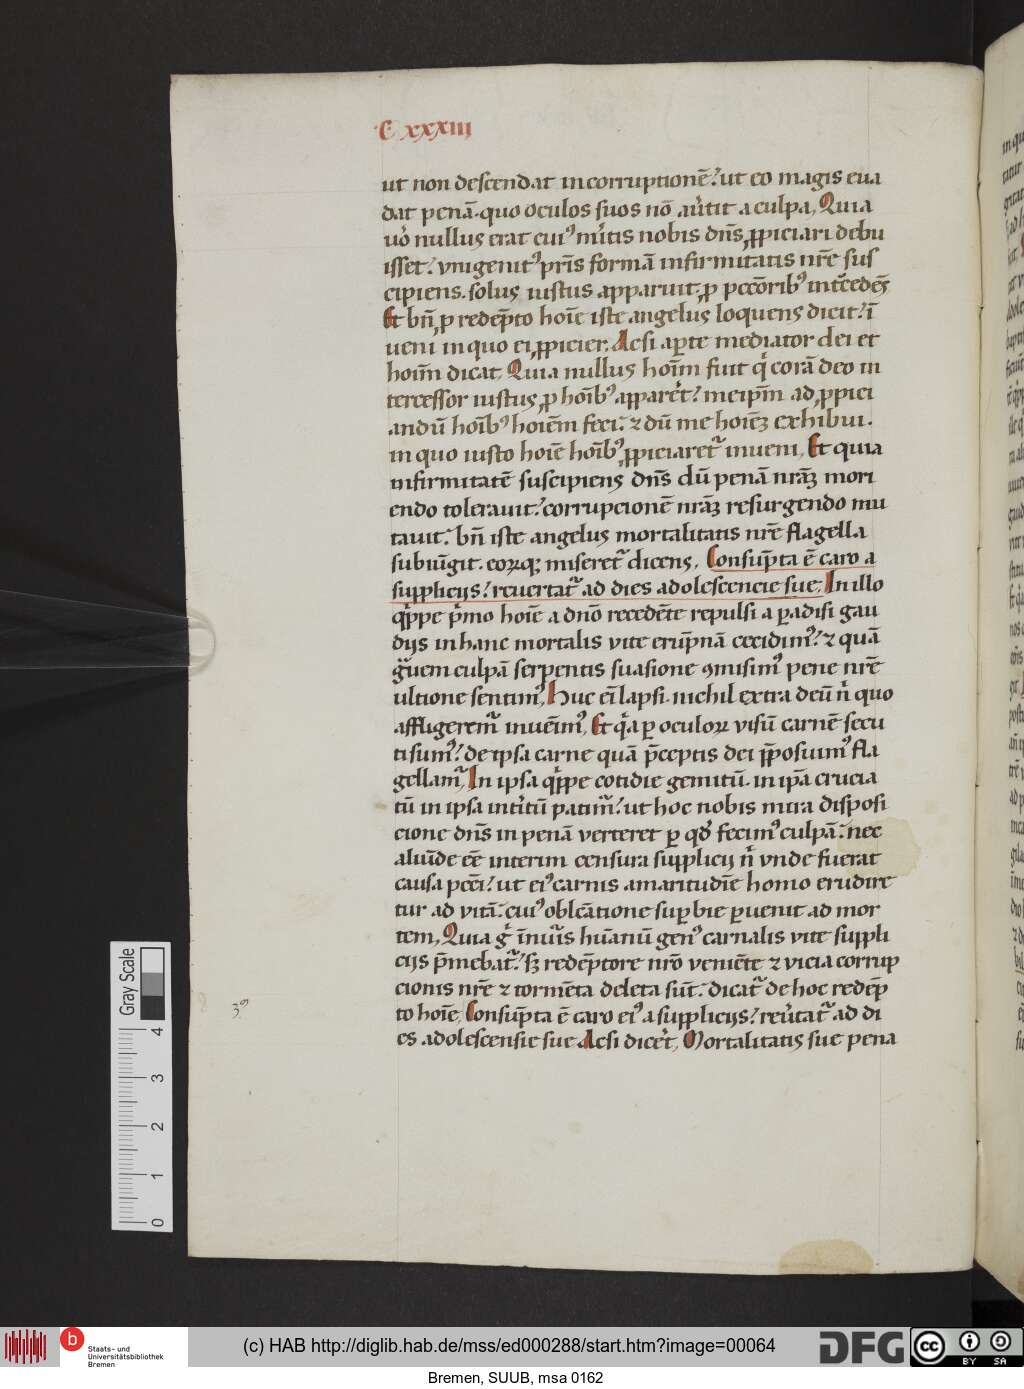 C xxxiii
ut non descendat in corruptionē. ut eo magis eua
dat penā. quo oculos suos nō au̓tit a culpa. Quia
uo̓ nullus erat cui᷒ mi̓tis nobis dn̄s ꝓpiciari debu
isset. vnigenit᷒ pr̄is formā infirmitatis nr̄e sus
cipiens. solus iustus apparuit, ꝓ pcc̄orib᷒ int̓cedēs
Et bn̄, ꝓ redēpto hoīe iste angelus loquens dicit. ī
ueni in quo ei, ꝓpicier. Acsi aꝑte mediator dei et
hoīm dicat. Quia nullus hoīm fuit qͥ corā deo in
tercessor iustus, ꝓ hoīb᷒ apparer̓t. meip̄m ad, ꝓpici
andū hoīb᷒ hoīem feci. ⁊ dū me hoīeꝫ exhibui.
in quo iusto hoīe hoīb᷒, ꝓpiciaret᷑ inueni. Et quia
infirmitatē suscipiens dn̄s dū penā nrāꝫ mori
endo tolerauit. corrupcionē nrāꝫ resurgendo mu
tauit. bn̄ iste angelus mortalitatis nr̄e flagella
subiūgit. eorꝗꝫ miseret᷑ dicens. Consūpta ē caro a
supplicijs. reuertat᷑ ad dies adolescencie sue. In illo
qͥppe pͥmo hoīe a dnō recedēte repulsi a ꝑadisi gau
dijs in hanc mortalis vite erūpnā cecidim᷒. ⁊ quā
gͣuem culpā serpentis suasione ꝯmisim᷒ pene nr̄e
ultione sentim᷒. Huc ei̅ lapsi. nichil extra deū nͥ quo
affligerem᷑ inuēim᷒. Et qͥa ꝑ oculoꝝ visū carnē secu
ti sum᷒. de ipsa carne quā p̄ceptis dei p̄posuim᷒ fla
gellam᷑. In ipsa qͥppe cotidie gemitū. in ip̄a crucia
tū in ipsa int̓itū patim᷑. ut hoc nobis mira disposi
cione dn̄s in penā verteret ꝑ qd̓ fecim᷒ culpā. nec
aliūde eēt interim censura supplicij nͥ vnde fuerat
causa pcc̄i. ut ei᷒ carnis amaritudīe homo erudire
tur ad vitā. cui᷒ oblc̄atione suꝑbie ꝑuenit ad mor
tem. Quia gͥ īnu̓is hūanū gen᷒ carnalis vite suppli
cijs p̄mebat᷑. sꝫ redēptore nrō veniēte ⁊ vicia corrup
cionis nr̄e ⁊ tormēta deleta sūt. dicat᷑ de hoc redēp
to hoīe. Consūpta ē caro ei᷒ a supplicijs. reu̓tat᷑ ad di
es adolescensie sue. Acsi dicer̓t. Mortalitatis sue pena
Gray Scale
4
3
2
1
0
b
Staats- und
Universitätsbibliothek
Bremen
(c) HAB http://diglib.hab.de/mss/ed000288/start.htm?image=00064
DFG
cc BY SA
Bremen, SUUB, msa 0162